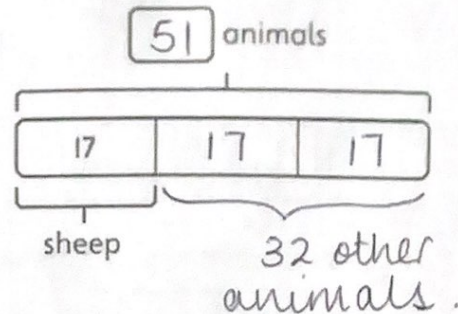 51 animals
17 17 17
sheep
32 other
animals.